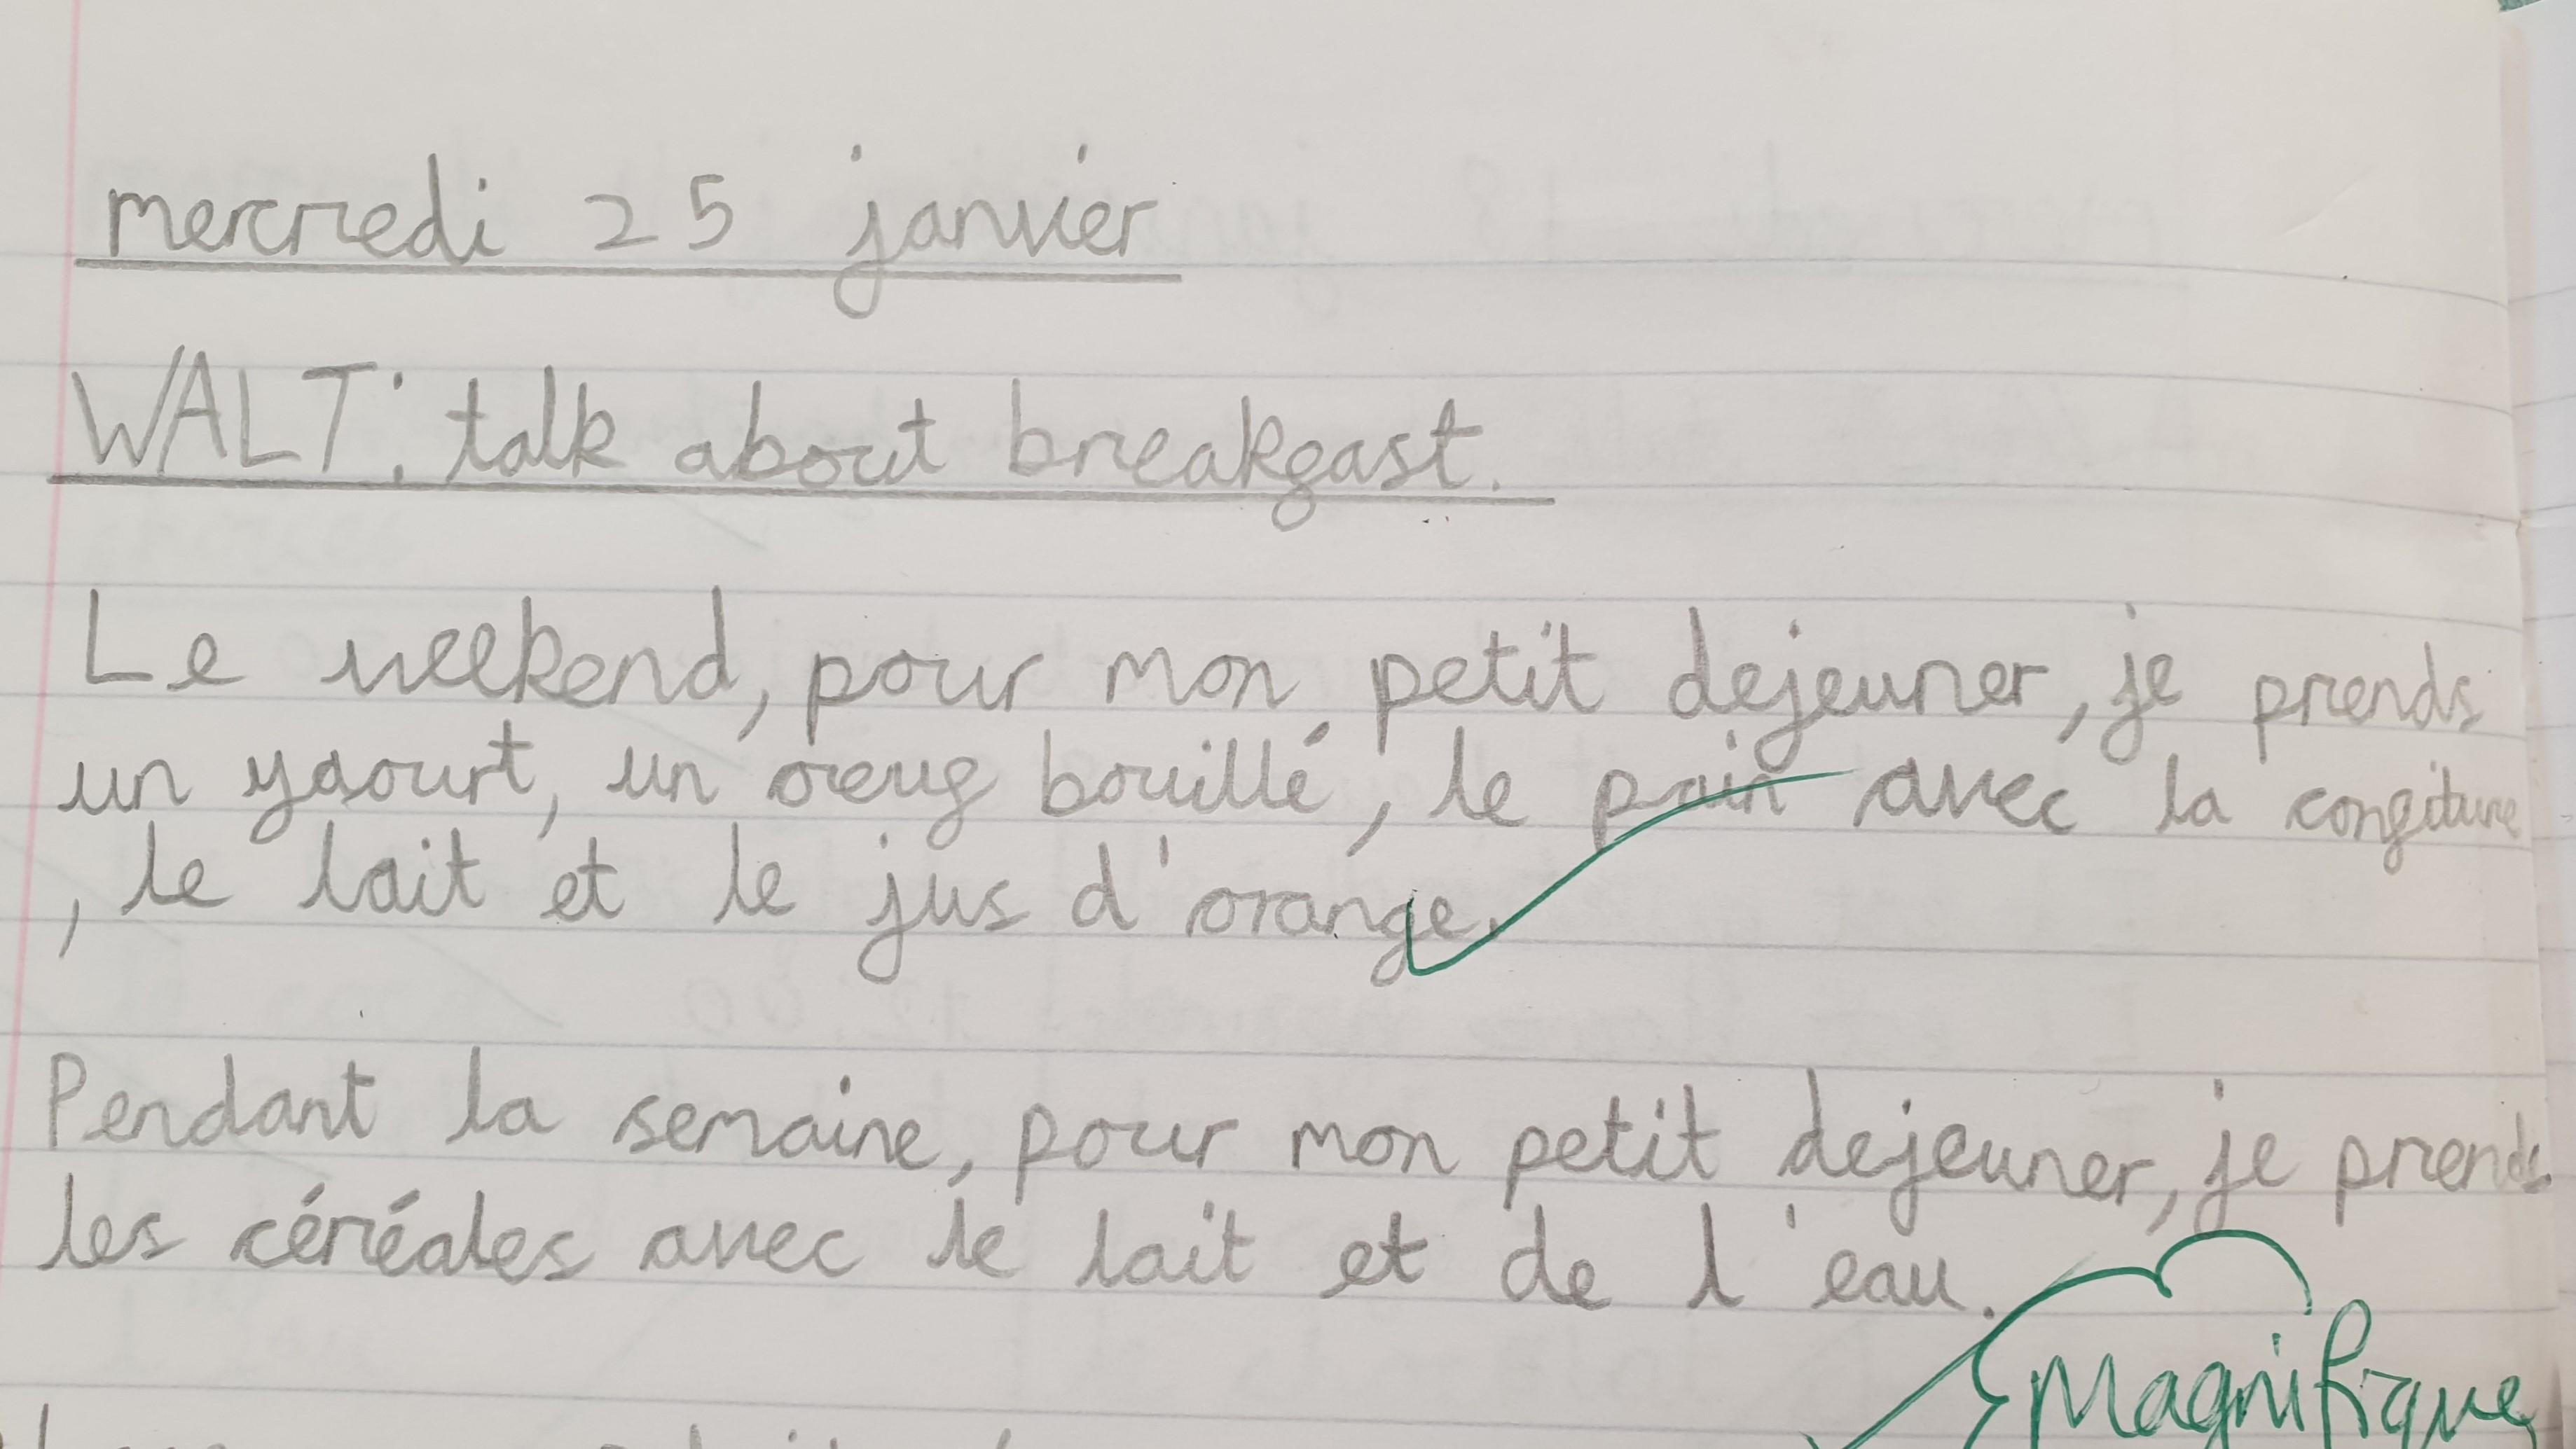 mercredi 25 janvier
WALT: talk about breakfast.
Le weekend, pour mon petit dejeuner, je prends
un yaourt, un oeuf bouillé, le pain avec la confiture
, le lait et le jus d'orange.
Pendant la semaine, pour mon petit dejeuner, je prends
les céréales avec le lait et de l'eau.
Magnifique